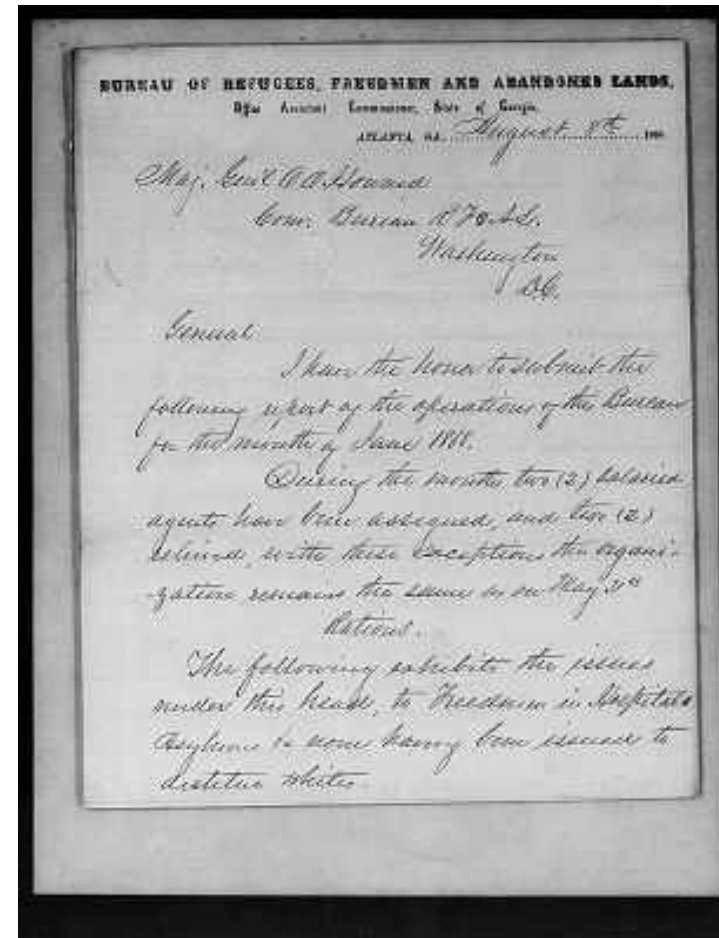 BUREAU OF REFUGEES, FREEDMEN AND ABANDONED LANDS,
Office Assistant Commissioner, State of Georgia,
ATLANTA, GA., August 8th 186
Maj. Genl O O Howard
Com. Bureau R F & A L.
Washington
D.C.
General
I have the honor to submit the
following report of the operations of this Bureau
for the month of June 1868.
During the month two (2) salaried
agents have been assigned, and two (2)
relieved, with these exceptions the organi-
-zation remains the same as on May 31st
Rations.
The following exhibits the issues
under this head, to Freedmen in Hospitals
Asylums &c none having been issued to
destitute whites.